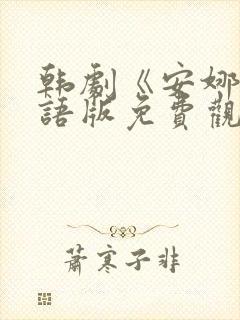 韩劇《安娜
語版免費觀
蕭寒子非